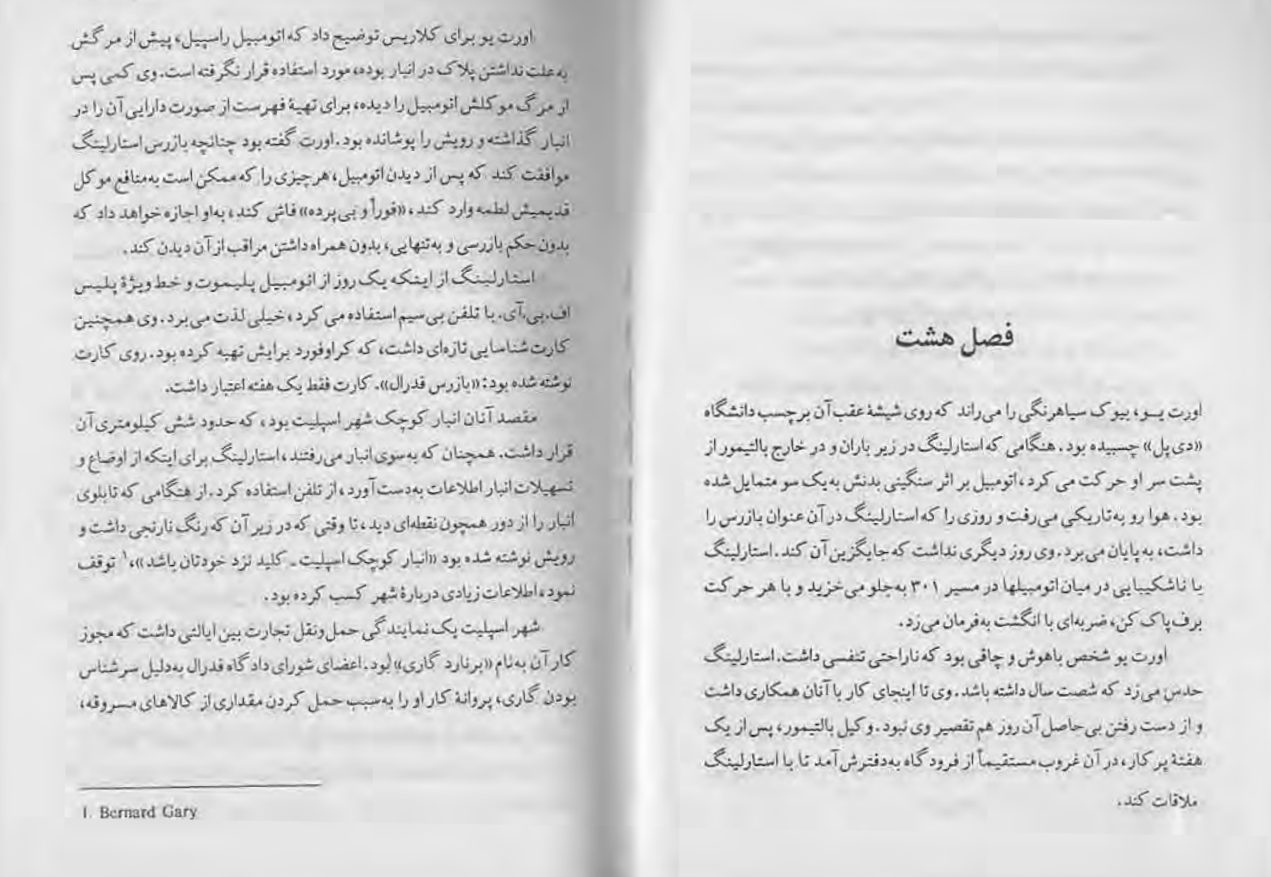 فصل هشت
اورت یـو، بیوک سیاهرنگی را می‌راند که روی شیشهٔ عقب آن برچسب دانشگاه
«دی پل» چسبیده بود. هنگامی که استارلینگ در زیر باران و در خارج بالتیمور از
پشت سر او حرکت می کرد، اتومبیل بر اثر سنگینی بدنش به‌یک سو متمایل شده
بود. هوا رو به‌تاریکی می‌رفت و روزی را که استارلینگ در آن عنوان بازرس را
داشت، به‌پایان می‌برد. وی روز دیگری نداشت که جایگزین آن کند. استارلینگ
با ناشکیبایی در میان اتومبیلها در مسیر ۳۰۱ به‌جلو می‌خزید و با هر حرکت
برف پاک کن، ضربه‌ای با انگشت به‌فرمان می‌زد.
اورت یو شخص باهوش و چاقی بود که ناراحتی تنفسی داشت. استارلینگ
حدس می‌زد که شصت سال داشته باشد. وی تا اینجای کار با آنان همکاری داشت
و از دست رفتن بی‌حاصل آن روز هم تقصیر وی نبود. وکیل بالتیمور، پس از یک
هفتهٔ پر کار، در آن غروب مستقیماً از فرودگاه به‌دفترش آمد تا با استارلینگ
ملاقات کند.
اورت یو برای کلاریس توضیح داد که اتومبیل راسپیل، پیش از مرگش
به‌علت نداشتن پلاک در انبار بوده، مورد استفاده قرار نگرفته است. وی کمی پس
از مرگ موکلش اتومبیل را دیده، برای تهیهٔ فهرست از صورت دارایی آن را در
انبار گذاشته و رویش را پوشانده بود. اورت گفته بود چنانچه بازرس استارلینگ
موافقت کند که پس از دیدن اتومبیل، هرچیزی را که ممکن است به‌منافع موکل
قدیمیش لطمه وارد کند، «فوراً و بی‌پرده» فاش کند، به‌او اجازه خواهد داد که
بدون حکم بازرسی و به‌تنهایی، بدون همراه داشتن مراقب از آن دیدن کند.
استارلینگ از اینکه یک روز از اتومبیل پلیموت و خط ویژهٔ پلیس
اف.بی.آی. با تلفن بی‌سیم استفاده می کرد، خیلی لذت می‌برد. وی همچنین
کارت شناسایی تازه‌ای داشت، که کراوفورد برایش تهیه کرده بود. روی کارت
نوشته شده بود: «بازرس فدرال». کارت فقط یک هفته اعتبار داشت.
مقصد آنان انبار کوچک شهر اسپلیت بود، که حدود شش کیلومتری آن
قرار داشت. همچنان که به‌سوی انبار می‌رفتند، استارلینگ برای اینکه از اوضاع و
تسهیلات انبار اطلاعات به‌دست آورد، از تلفن استفاده کرد. از هنگامی که تابلوی
انبار را از دور همچون نقطه‌ای دید، تا وقتی که در زیر آن که رنگ نارنجی داشت و
رویش نوشته شده بود «انبار کوچک اسپلیت ـ کلید نزد خودتان باشد»،۱ توقف
نمود، اطلاعات زیادی دربارهٔ شهر کسب کرده بود.
شهر اسپلیت یک نمایندگی حمل‌ونقل تجارت بین ایالتی داشت که مجوز
کار آن به‌نام «برنارد گاری» بود. اعضای شورای دادگاه فدرال به‌دلیل سرشناس
بودن گاری، پروانهٔ کار او را به‌سبب حمل کردن مقداری از کالاهای مسروقه،
1. Bernard Gary